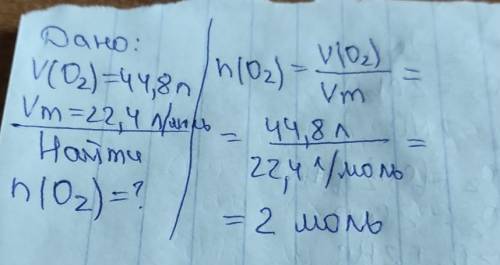 Дано:
V(O₂)=44,8л
Vm=22,4 л/моль
Найти
n(O₂)=?
n(O₂)=V(O₂)/Vm=
=44,8л/22,4 л/моль=
=2 моль